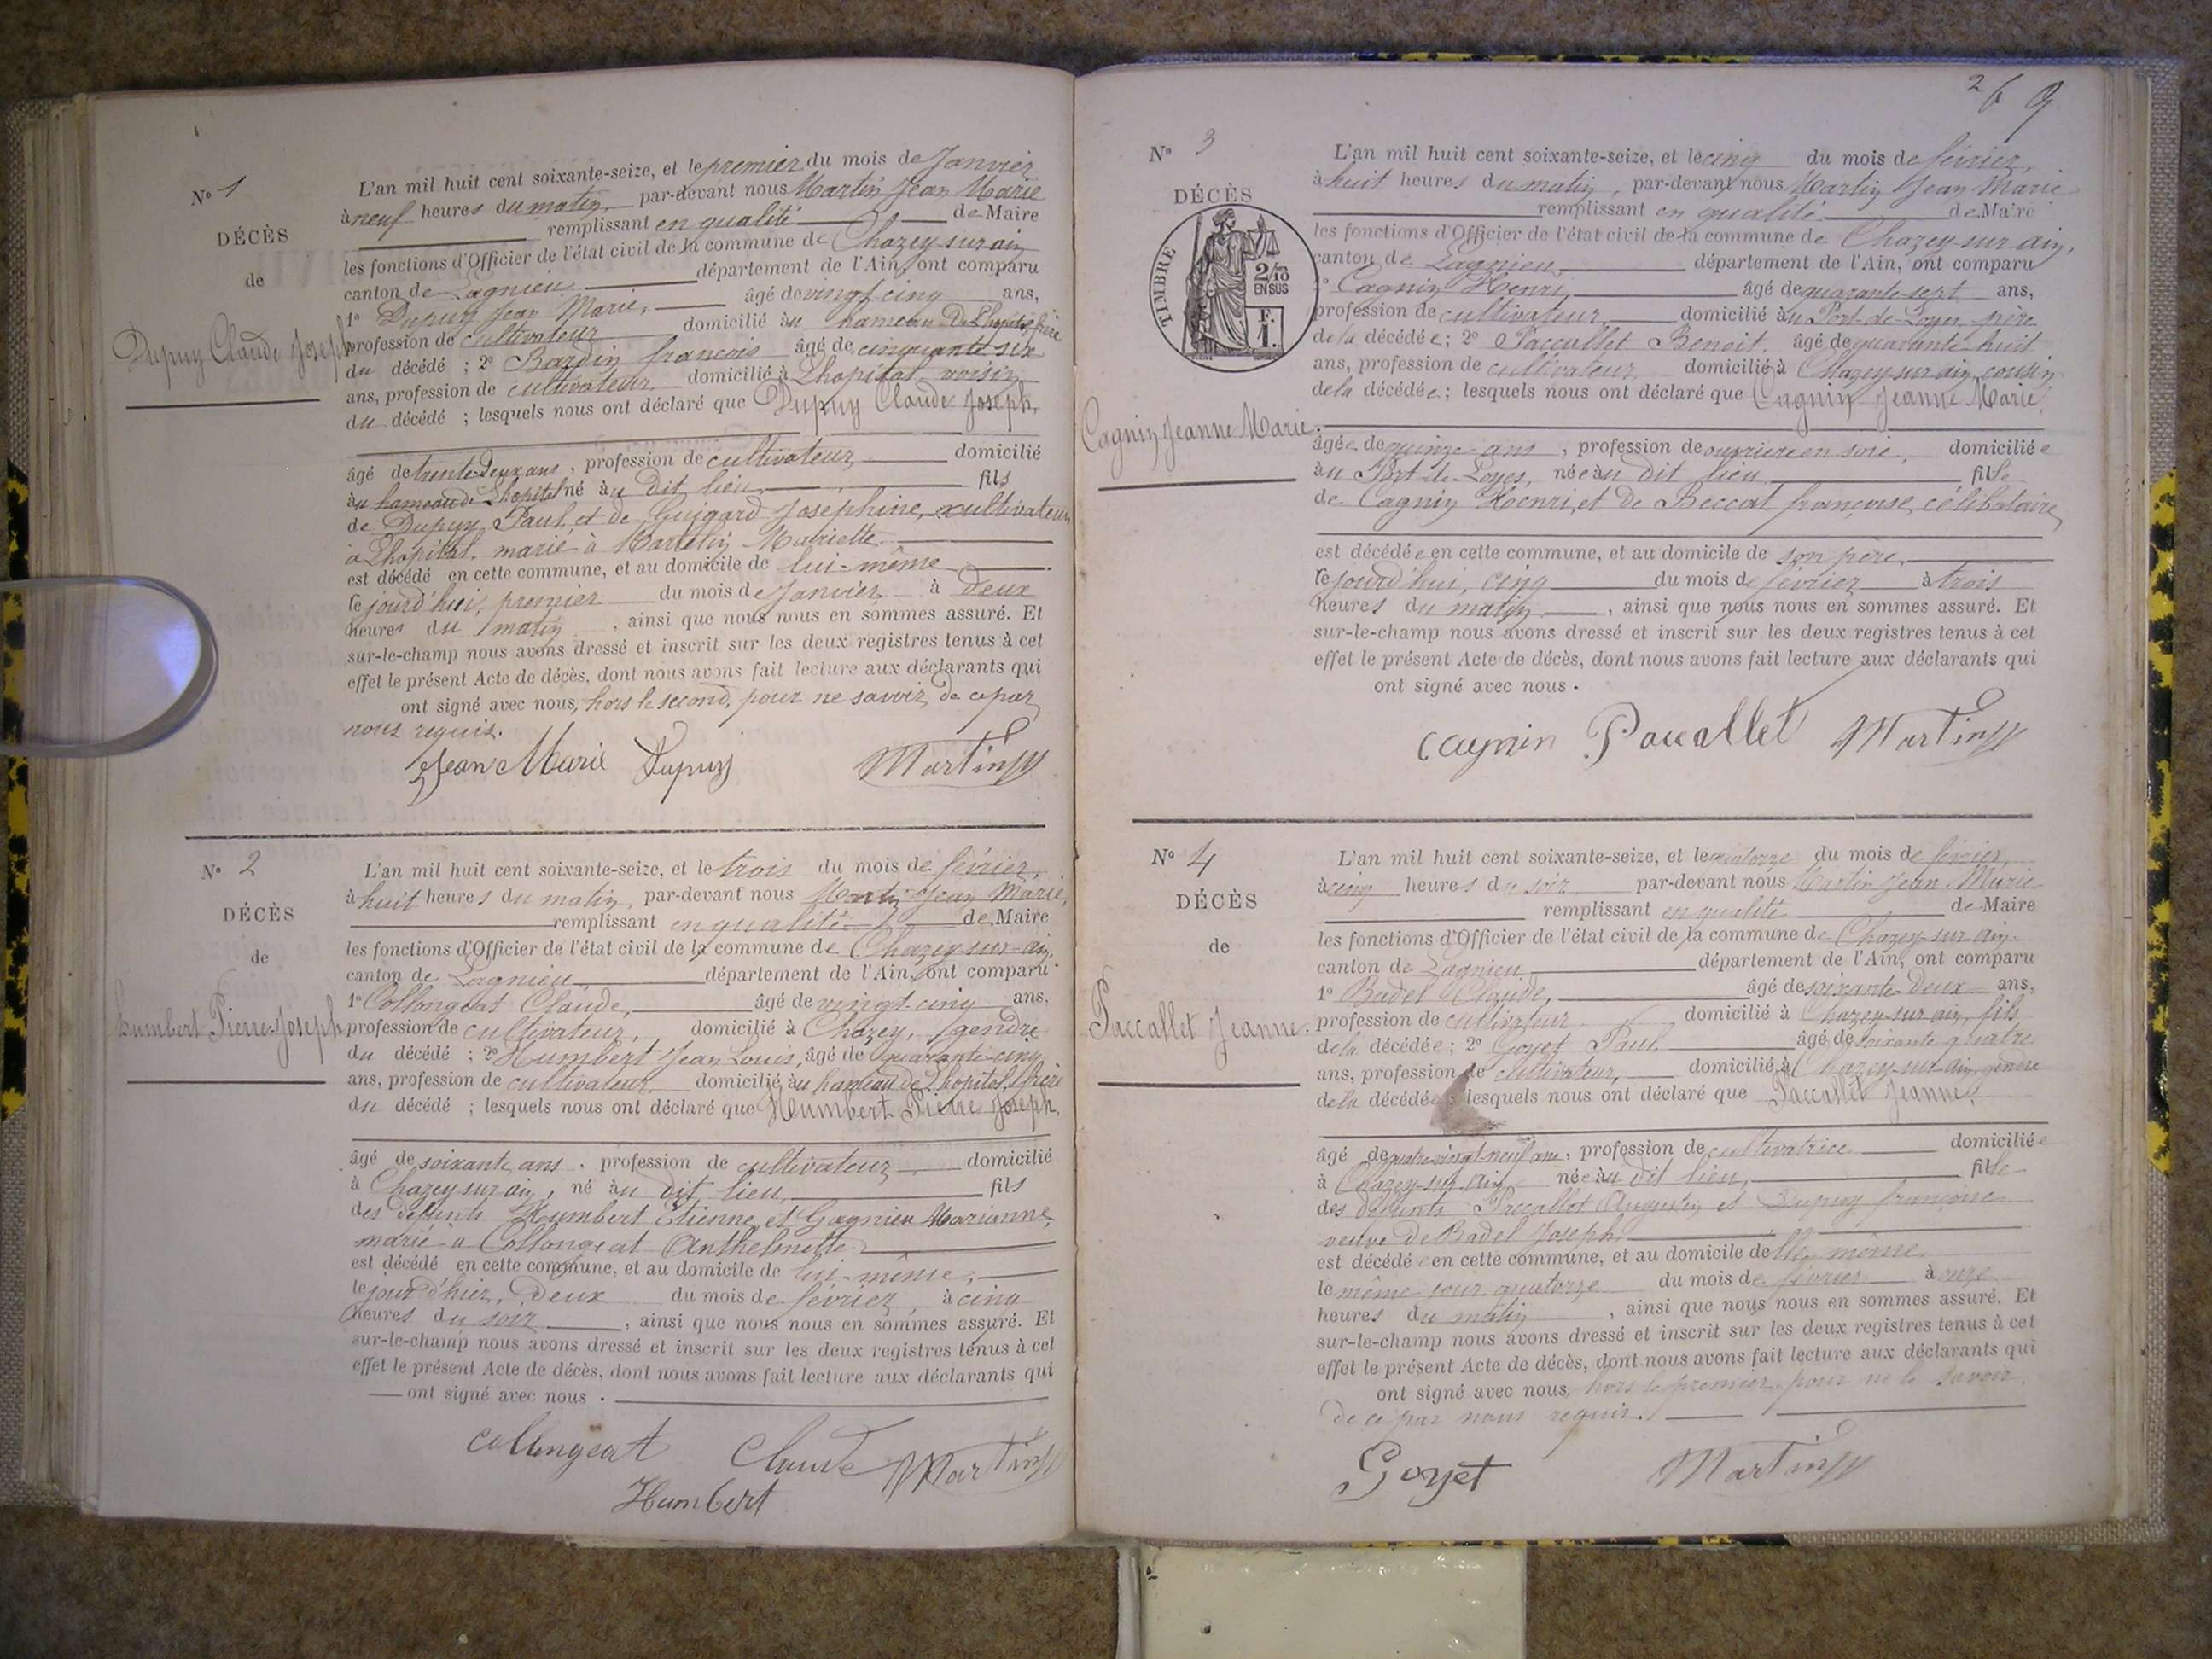 N° 1
DÉCÈS
de
Dupuy Claude Joseph
L'an mil huit cent soixante-seize, et le premier du mois de Janvier
à neuf heures du matin, par-devant nous Martin Jean Marie
remplissant en qualité de Maire
les fonctions d'Officier de l'état civil de la commune de Chazey sur ain
canton de Lagnieu département de l'Ain, ont comparu
1° Dupuy Jean Marie, âgé de vingt cinq ans,
profession de cultivateur domicilié au hameau De Lhopital, frère
du décédé ; 2° Bardin francois âgé de cinquante six
ans, profession de cultivateur domicilié à Lhopital voisin
du décédé ; lesquels nous ont déclaré que Dupuy Claude Joseph,
âgé de trente-Deux ans, profession de cultivateur domicilié
au hameau de Lhopital né au Dit lieu fils
de Dupuy Paul, et de Guigard Joséphine, cultivateurs
à Lhopital, marié à Martelin Mariette
est décédé en cette commune, et au domicile de lui-même
le jourd'hui, premier du mois de Janvier à Deux
heures du matin, ainsi que nous nous en sommes assuré. Et
sur-le-champ nous avons dressé et inscrit sur les deux registres tenus à cet
effet le présent Acte de décès, dont nous avons fait lecture aux déclarants qui
ont signé avec nous, hors le second, pour ne savoir, de ce par
nous requis.
Jean Marie Dupuy Martin
N° 2
DÉCÈS
de
Humbert Pierre-Joseph
L'an mil huit cent soixante-seize, et le trois du mois de février,
à huit heures du matin, par-devant nous Martin Jean Marie,
remplissant en qualité de Maire
les fonctions d'Officier de l'état civil de la commune de Chazey-sur-ain,
canton de Lagnieu département de l'Ain, ont comparu
1° Collongeat Claude, âgé de vingt-cinq ans,
profession de cultivateur, domicilié à Chazey, gendre
du décédé ; 2° Humbert Jean Louis, âgé de quarante-cinq
ans, profession de cultivateur domicilié au hameau de Lhopital, frère
du décédé ; lesquels nous ont déclaré que Humbert Pierre Joseph,
âgé de soixante ans, profession de cultivateur domicilié
à Chazey sur ain, né au dit lieu, fils
des défunts Humbert Etienne et Gagnieu Marianne,
marié à Collongeat Anthelmette
est décédé en cette commune, et au domicile de lui-même,
le jour d'hier, Deux du mois de février, à cinq
heures du soir, ainsi que nous nous en sommes assuré. Et
sur-le-champ nous avons dressé et inscrit sur les deux registres tenus à cet
effet le présent Acte de décès, dont nous avons fait lecture aux déclarants qui
ont signé avec nous.
Collongeat Claude Martin
Humbert
26 9
N° 3
DÉCÈS
TIMBRE
2/10
EN SUS
F.
1.
Cagnin Jeanne Marie.
L'an mil huit cent soixante-seize, et le cinq du mois de février,
à huit heures du matin, par-devant nous Martin Jean Marie
remplissant en qualité de Maire
les fonctions d'Officier de l'état civil de la commune de Chazey-sur ain,
canton de Lagnieu, département de l'Ain, ont comparu
1° Cagnin Henri, âgé de quarante-sept ans,
profession de cultivateur domicilié au Port-de-Loyes, père
de la décédée ; 2° Paccallet Benoit, âgé de quarante huit
ans, profession de cultivateur domicilié à Chazey-sur ain, cousin
de la décédée ; lesquels nous ont déclaré que Cagnin Jeanne Marie,
âgée de quinze ans, profession de ouvrière en soie, domiciliée
au Port-de-Loyes, née au dit lieu, fille
de Cagnin Henri, et de Beccat françoise, célibataire
est décédée en cette commune, et au domicile de son père,
le jourd'hui, cinq du mois de février à trois
heures du matin, ainsi que nous nous en sommes assuré. Et
sur-le-champ nous avons dressé et inscrit sur les deux registres tenus à cet
effet le présent Acte de décès, dont nous avons fait lecture aux déclarants qui
ont signé avec nous.
Cagnin Paccallet Martin
N° 4
DÉCÈS
de
Paccallet Jeanne.
L'an mil huit cent soixante-seize, et le quatorze du mois de février,
à cinq heures du soir par-devant nous Martin Jean Marie
remplissant en qualité de Maire
les fonctions d'Officier de l'état civil de la commune de Chazey-sur-ain
canton de Lagnieu département de l'Ain, ont comparu
1° Badel Claude, âgé de soixante-Deux ans,
profession de cultivateur domicilié à Chazey-sur ain, fils
de la décédée ; 2° Goyet Paul âgé de soixante quatre
ans, profession de cultivateur, domicilié à Chazey-sur-ain, gendre
de la décédée ; lesquels nous ont déclaré que Paccallet Jeanne,
âgé de quatre-vingt-neuf ans, profession de cultivatrice domiciliée
à Chazey-sur ain, née au Dit lieu, fille
des défunts Paccallet Augustin et Dupuy françoise
veuve de Badel Joseph
est décédée en cette commune, et au domicile d'elle même
le même jour quatorze du mois de février à onze
heures du matin, ainsi que nous nous en sommes assuré. Et
sur-le-champ nous avons dressé et inscrit sur les deux registres tenus à cet
effet le présent Acte de décès, dont nous avons fait lecture aux déclarants qui
ont signé avec nous, hors le premier, pour ne le savoir,
de ce par nous requis.
Goyet Martin